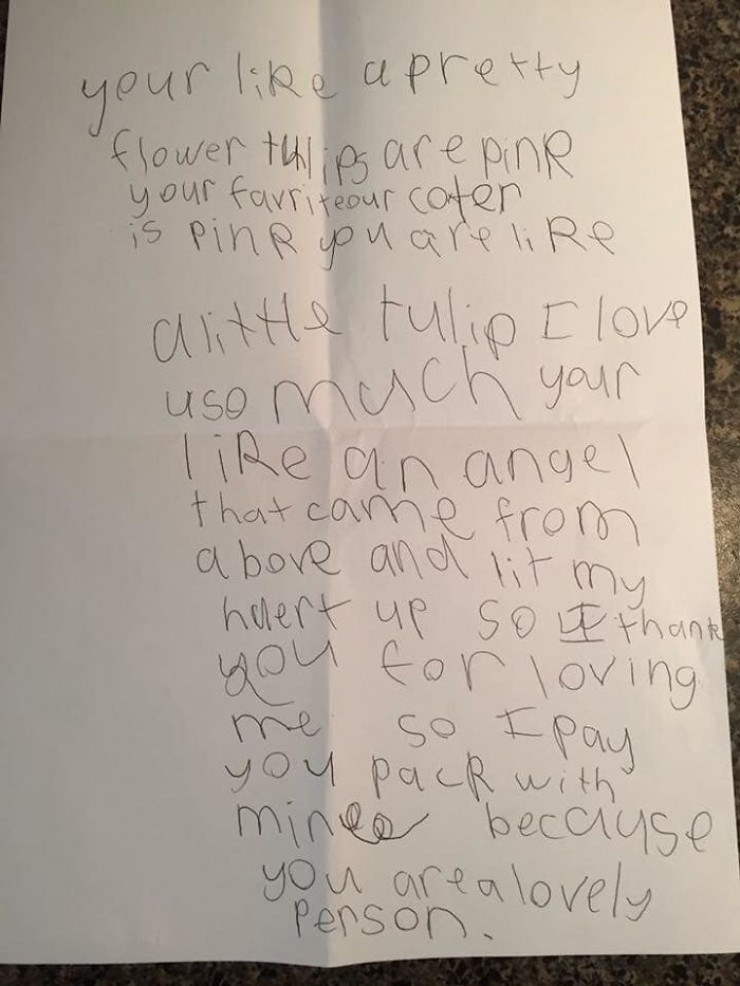 your like a pretty
flower tulips are pink
your favriteour coter
is pink you are like
a little tulip I love
u so much your
like an angel
that came from
above and lit my
huert up so I thank
you for loving
me so I pay
you pack with
mine because
you are a lovely
person.